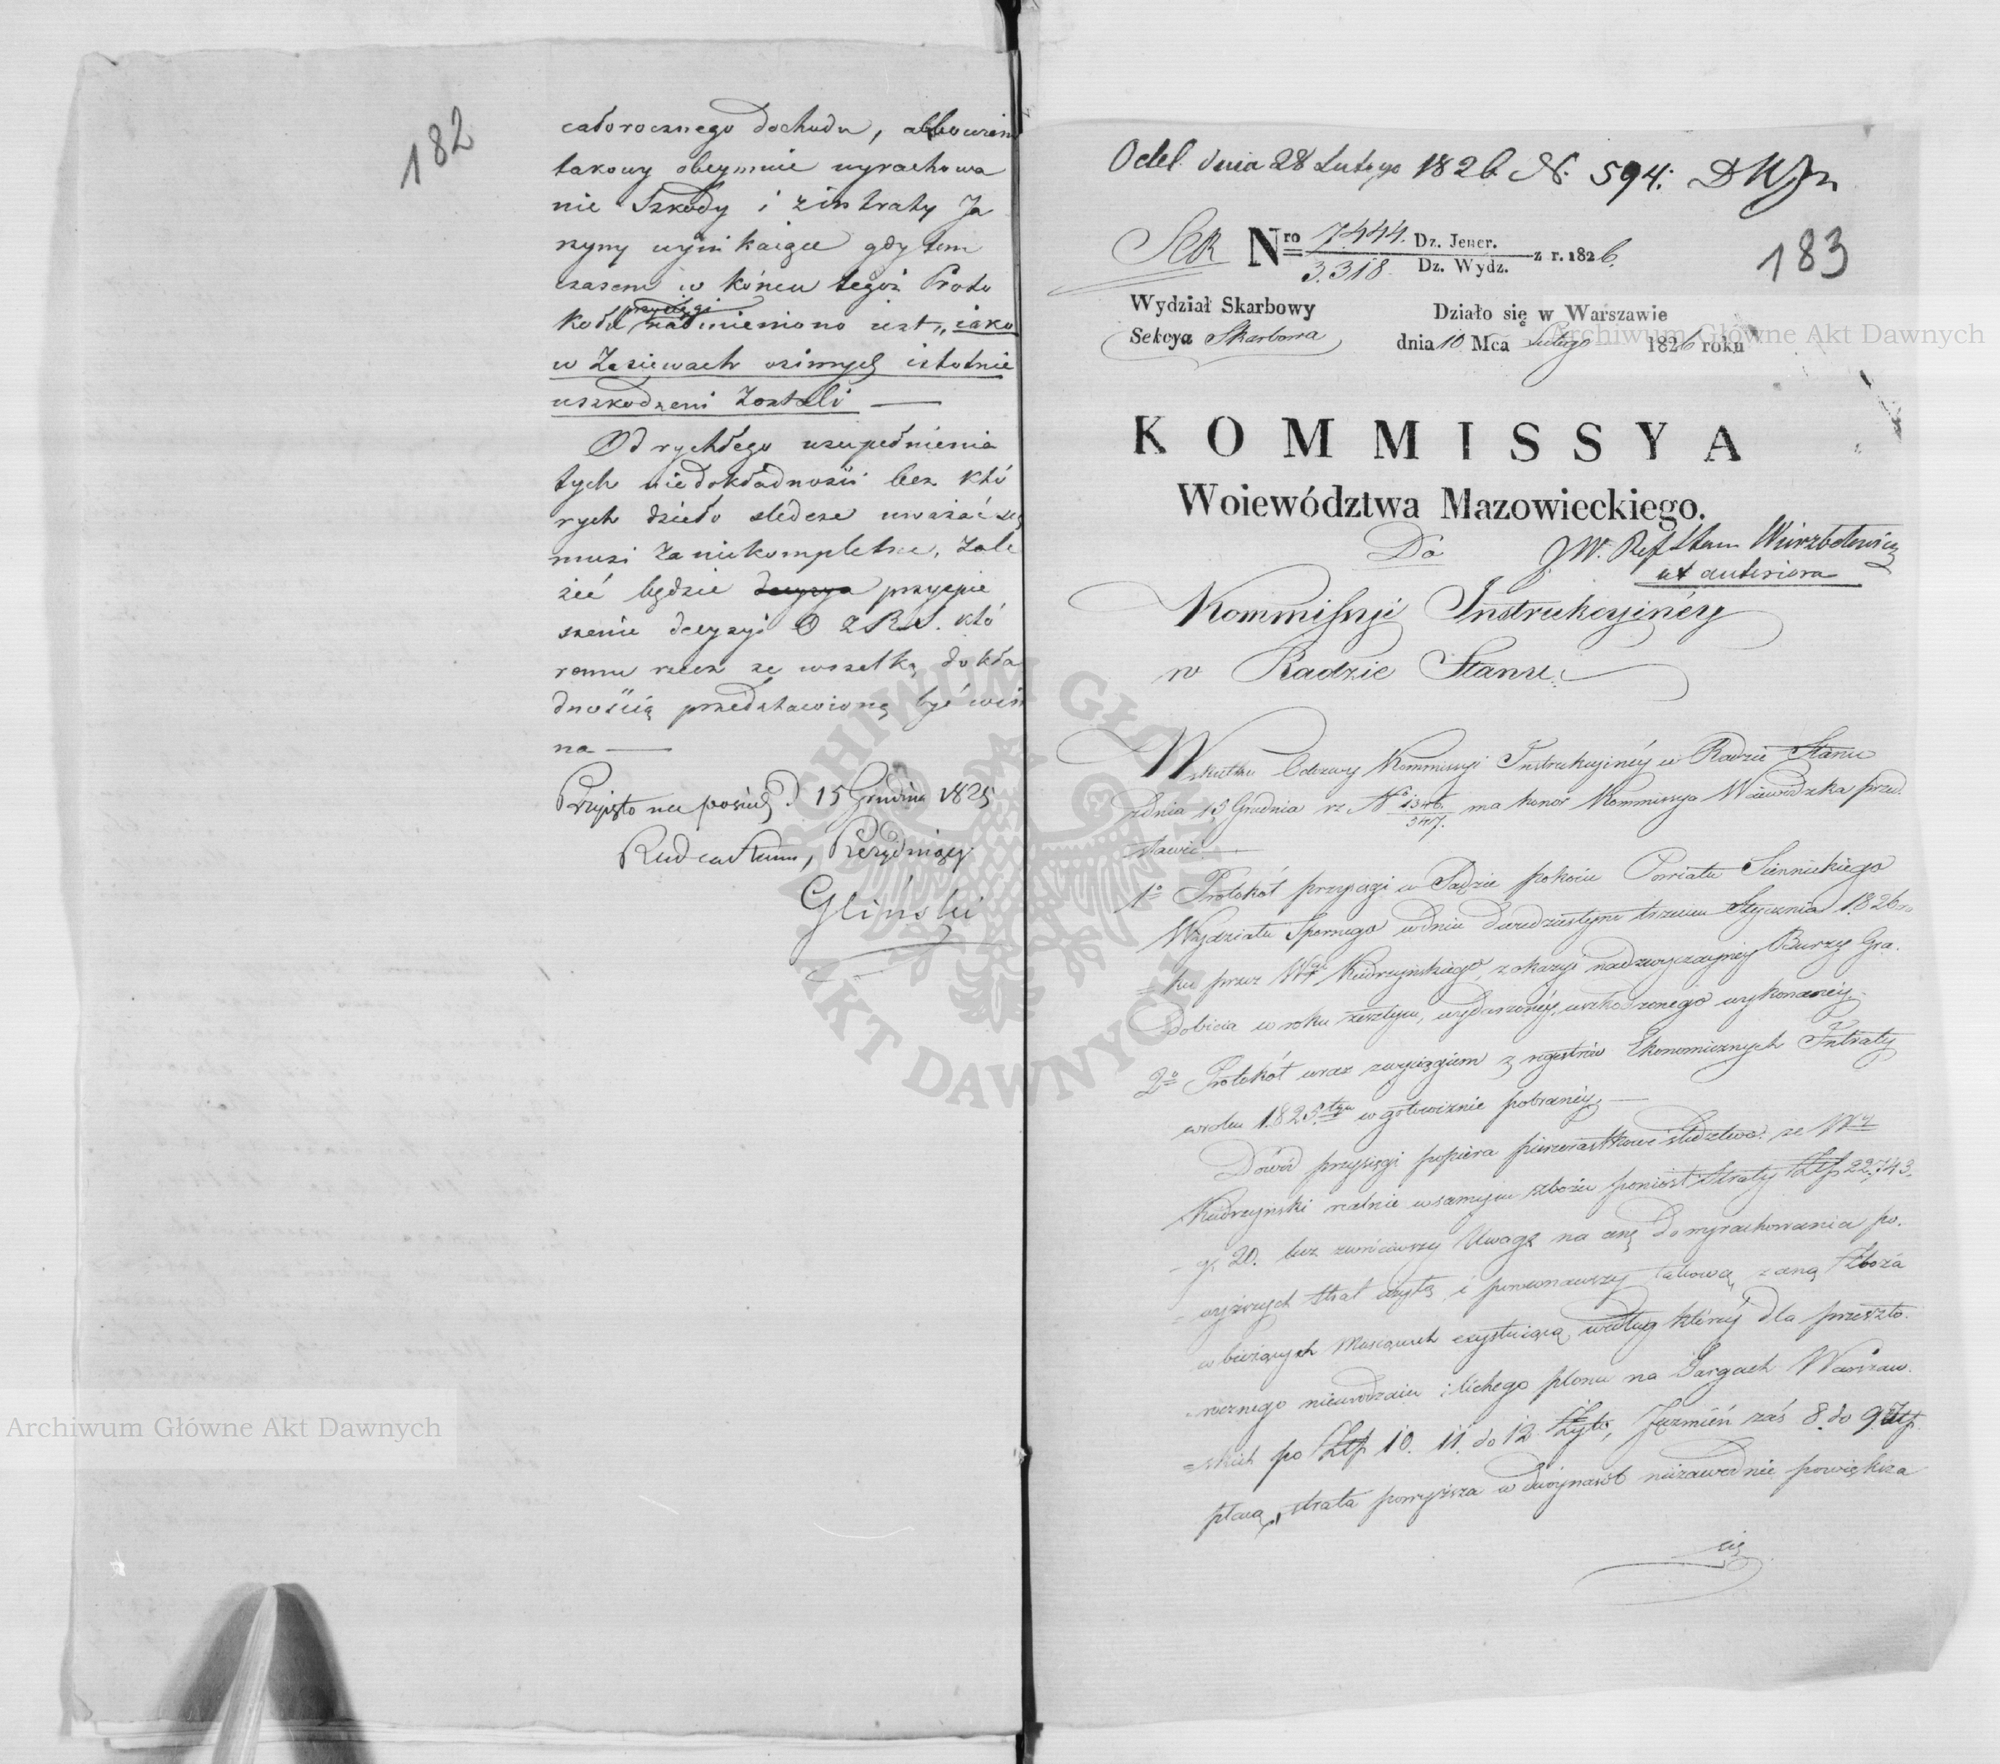 182
całorocznego dochodu, albowiem
takowy obeymuie wyrachowa
nie Szkody i zintraty Ja
rzyny wynikaiące gdy tem
czasem w końcu tegoż Proto
kołu przysięgi nadmieniono iest, iako
w Zasiewach ozimych istotnie
uszkodzeni Zostali —
Od rychłego uzupełnienia
tych niedokładności bez któ
rych dzieło śledcze uważać się
musi za niekompletne, Zale
żeć będzie decyzya przyspie
szenie decyzyi O Z R S. któ
remu rzecz ze wszelką dokła
dnością przedstawioną być win
na —
Przyięto na posied. d. 15 Grudnia 1825
Radca Stanu, Prezyduiący
Gliński
Archiwum Główne Akt Dawnych
Odeb. dnia 28 Lutego 1826. N. 594.
183
Nro 7444. Dz. Jener.
3.318. Dz. Wydz. z r. 1826.
Wydział Skarbowy
Sekcya Skarbowa
Działo się w Warszawie
dnia 10 Mca Lutego 1826 roku
Archiwum Główne Akt Dawnych
KOMMISSYA
Woiewództwa Mazowieckiego.
Do
JW. Ref Stanu Wierzbołowicz
ut anteriora
Kommissyi Instrukcyinéy
w Radzie Stanu.
W skutku Odezwy Kommissyi Instrukcyinéy w Radzie Stanu
z dnia 15 Grudnia rz N 1346/347. ma honor Kommissya Woiewódzka przed
stawić —
1o Protokół przysięgi w Sądzie pokoiu Powiatu Siennickiego
Wydziału Spornego w dniu dwudziestym trzecim Stycznia 1826 ro
=ku przez Wgo Kudrzyńskiego, z okazyi nadzwyczayney Burzy Gra.
dobicia w roku zeszłym, wydarzonéy, uszkodzonego wykonanéy.
2o Protokół wraz z wyciągiem z regestrów Ekonomicznych Intraty
w roku 1825tym w gotowiźnie pobranéy. —
Dowód przysięgi popiera pierwiastkowe śledztwo, że Wy
Kudrzyński realnie w samym zbożu poniósł straty Złp 22,743.
gr 20. lecz zwróciwszy Uwagę na cenę do wyrachowania po.
=wyższych strat użytą, i porównawszy takową, z ceną Zboża
w bieżących Miesiącach exystuiącą, według któréy dla przeszło.
=rocznego nieurodzaiu i lichego plonu na Targach Warszaw.
=skich po Złp 10. 11. do 12 Żyto, Jęczmień zaś 8. do 9 Złp.
płacą, strata powyższa w dwóynasób niezawodnie powiększa
się
ARCHIWUM GŁÓWNE
AKT DAWNYCH